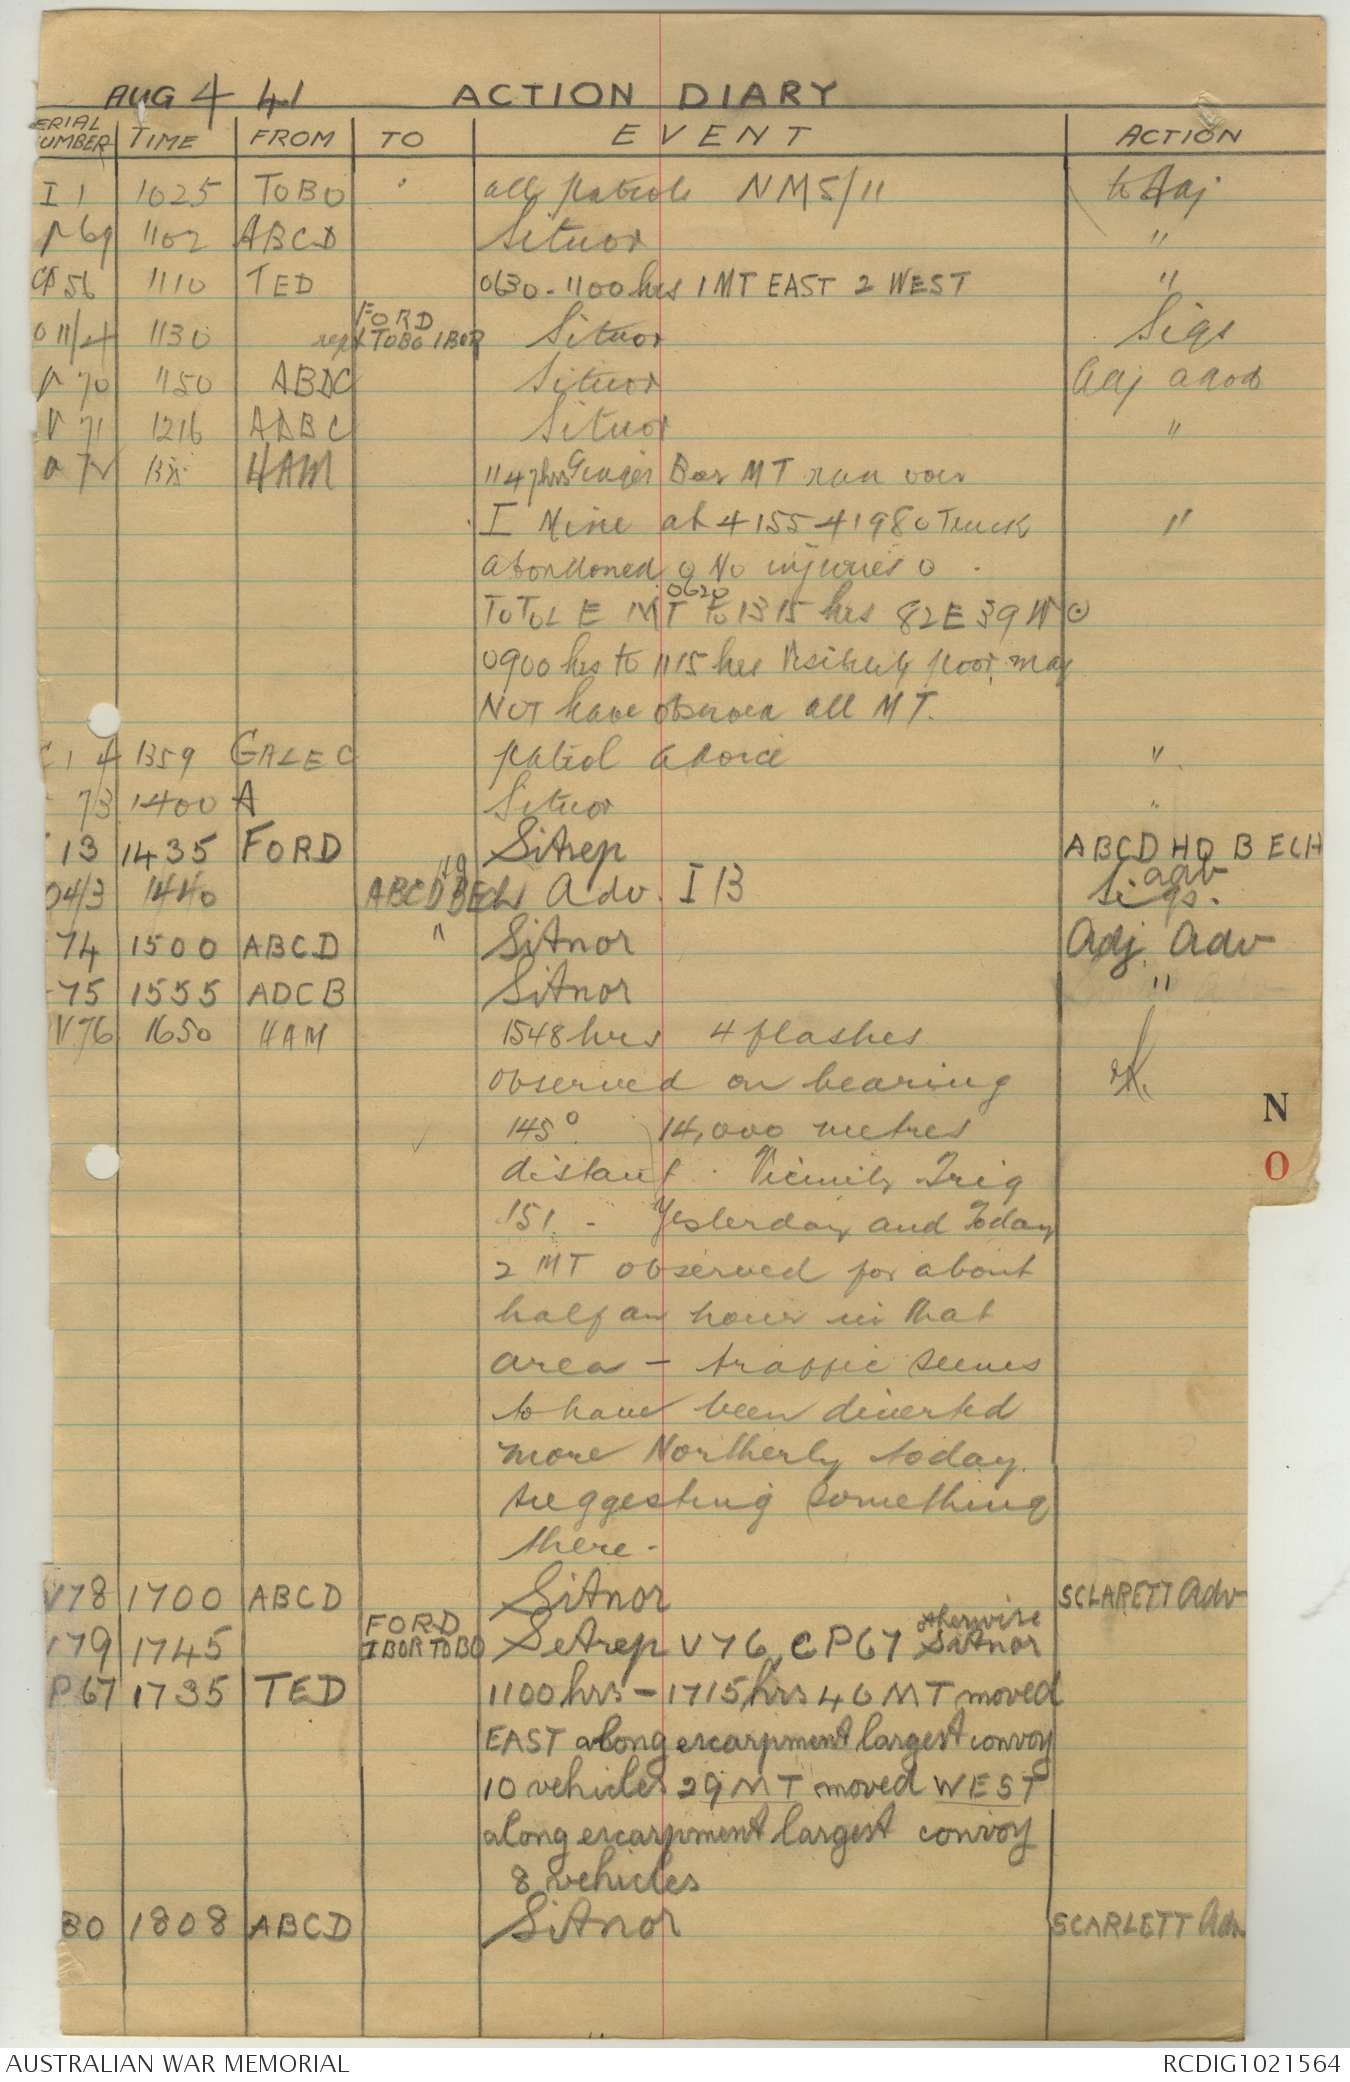 AUG 4 41 ACTION DIARY
ERIAL UMBER TIME FROM TO EVENT ACTION
I 1 1025 TOBO all patrols NM5/11 to Adj
69 1102 ABCD Sitnor "
CP 56 1110 TED 0630 - 1100 hrs 1 MT EAST 2 WEST "
O 11/4 1130 FORD rept TOBO IBOR Sitnor Sigs
V 70 1150 ABDC Sitnor Adj
V 71 1216 ADBC Sitnor "
HAM 1147 hrs Bar MT ran over
I Mine at 41554198 o Truck "
abandoned o No injuries o
TOTOL E MT 0620 to 1315 hrs 82E 39 W ⊙
0900 hrs to 1115 hrs Visibility poor, may
NOT have observed all MT.
4 1359 GALEC patrol "
73 1400 A Sitnor "
13 1435 FORD Sitrep ABCD HQ B ECH
O4/3 1440 ABCD HQ BEch Adv. I 13 adv Sigs.
74 1500 ABCD " Sitnor Adj. Adv
75 1555 ADCB Sitnor "
V76 1650 HAM 1548 hrs 4 flashes
observed on bearing
145° 14,000 metres
distant. Vicinity Trig
151 - Yesterday and Today
2 MT observed for about
half an hour in that
area - traffic seems
to have been diverted
more Northerly today
suggesting something
there -
N
O
V78 1700 ABCD Sitnor SCLARETT Adv
179 1745 FORD IBOR TOBO Setrep V76, CP67 otherwise Sitnor
P67 1735 TED 1100 hrs - 1715 hrs 40 MT moved
EAST along escarpment largest convoy
10 vehicles 29 MT moved WEST
along escarpment largest convoy
8 vehicles
80 1808 ABCD Sitnor SCARLETT Adv
AUSTRALIAN WAR MEMORIAL RCDIG1021564